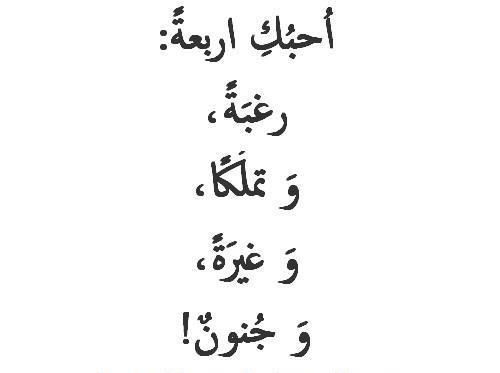 أُحبُكِ اربعةً:
رغبَةً،
وَ تملَكًا،
وَ غيرَةً،
وَ جُنونٌ!